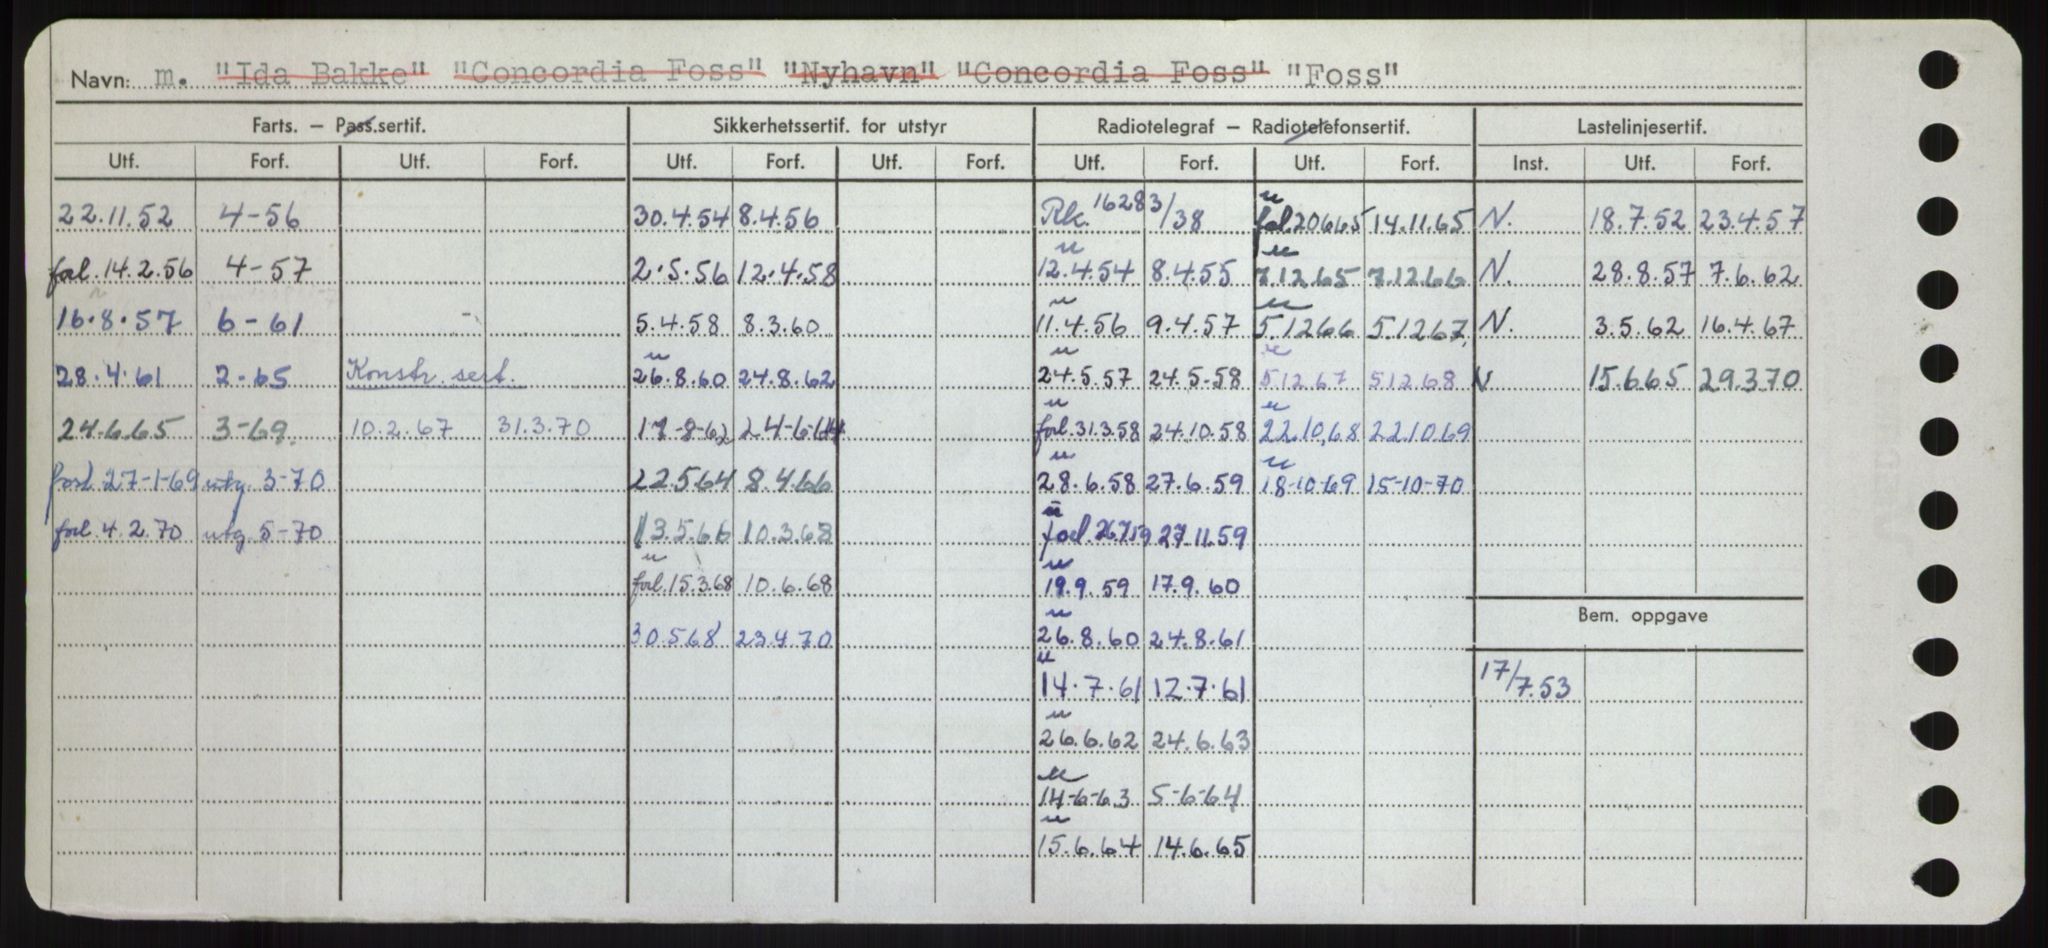 Navn: m. "Ida Bakke" "Concordia Foss" "Nyhavn" "Concordia Foss" "Foss"
Farts. – Pass.sertif. Sikkerhetssertif. for utstyr Radiotelegraf – Radiotelefonsertif. Lastelinjesertif.
Utf. Forf. Utf. Forf. Utf. Forf. Utf. Forf. Utf. Forf. Utf. Forf. Inst. Utf. Forf.
22.11.52 4-56 30.4.54 8.4.56 Rk. 16283/38 u fol. 20665 14.11.65 N. 18.7.52 23.4.57
forl. 14.2.56 4-57 2.5.56 12.4.58 u 12.4.54 8.4.55 u 7.12.65 7.12.66 N. 28.8.57 7.6.62
16.8.57 6-61 5.4.58 8.3.60 u 11.4.56 9.4.57 u 5.1266 5.1267. N. 3.5.62 16.4.67
28.4.61 2-65 Konstr. sert. u 26.8.60 24.8.62 u 24.5.57 24.5.58 u 512.67 512.68 N 15.6.65 29.370
24.6.65 3-69. 10.2.67 31.3.70 17-8-62 24-6-64 u forl. 31.3.58 24.10.58 u 22.10.68 22.10.69
forl 27-1-69 utg. 3-70 22.564 8.4.66 u 28.6.58 27.6.59 u 18-10-69 15-10-70
forl. 4.2.70 utg. 5-70 13.5.66 10.3.68 u forl. 26.7.59 27.11.59
u forl. 15.3.68 10.6.68 u 19.9.59 17.9.60
30.568 23.4.70 u 26.8.60 24.8.61
Bem. oppgave
u 14.7.61 12.7.61 17/7.53
u 26.6.62 24.6.63
u 14-6-63 5-6-64
u 15.6.64 14.6.65